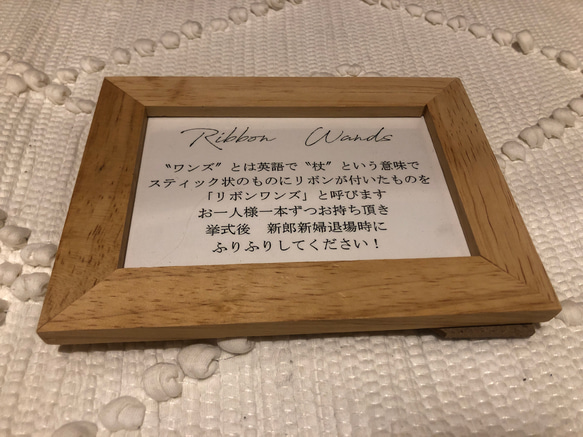 Ribbon Wands
“ワンズ”とは英語で“杖”という意味で
スティック状のものにリボンが付いたものを
「リボンワンズ」と呼びます
お一人様一本ずつお持ち頂き
挙式後　新郎新婦退場時に
ふりふりしてください！